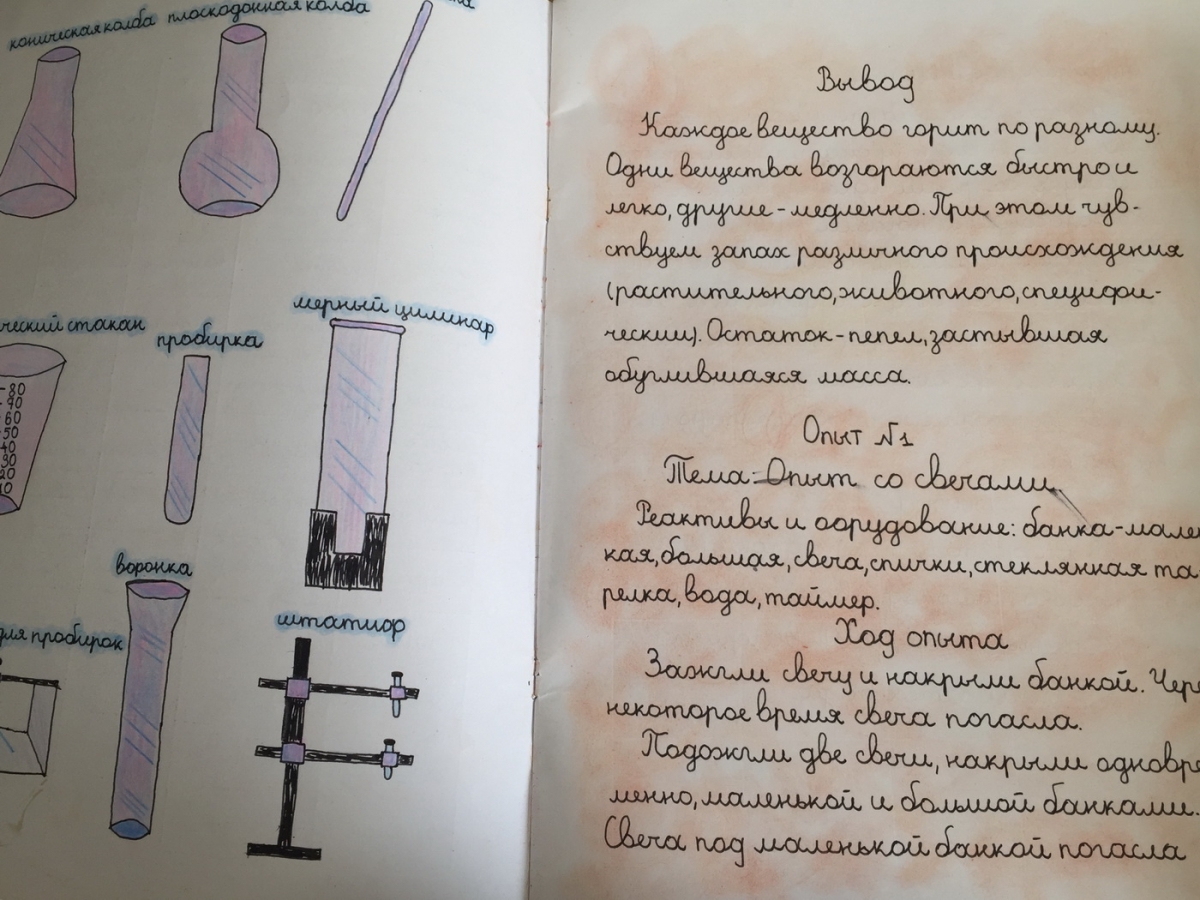 коническая колба
плоскодонная колба
ческий стакан
80
90
60
50
40
30
20
10
пробирка
мерный цилинар
для пробирок
воронка
штатиор
Вывод
Каждое вещество горит по разному.
Одни вещества возгораются быстро и
легко, другие - медленно. При этом чув-
ствуем запах различного происхождения
(растительного, животного, специфи-
ческий). Остаток - пепел, застывшая
обуглившаяся масса.
Опыт №1
Тема: Опыт со свечами
Реактивы и оорудование: банка-мален
кая, большая, свеча, спички, стеклянная та-
релка, вода, таймер.
Ход опыта
Зажгли свечу и накрыли банкой. Чере
некоторое время свеча погасла.
Подожгли две свечи, накрыли одновре
менно, маленькой и большой банками.
Свеча под маленькой банкой погасла